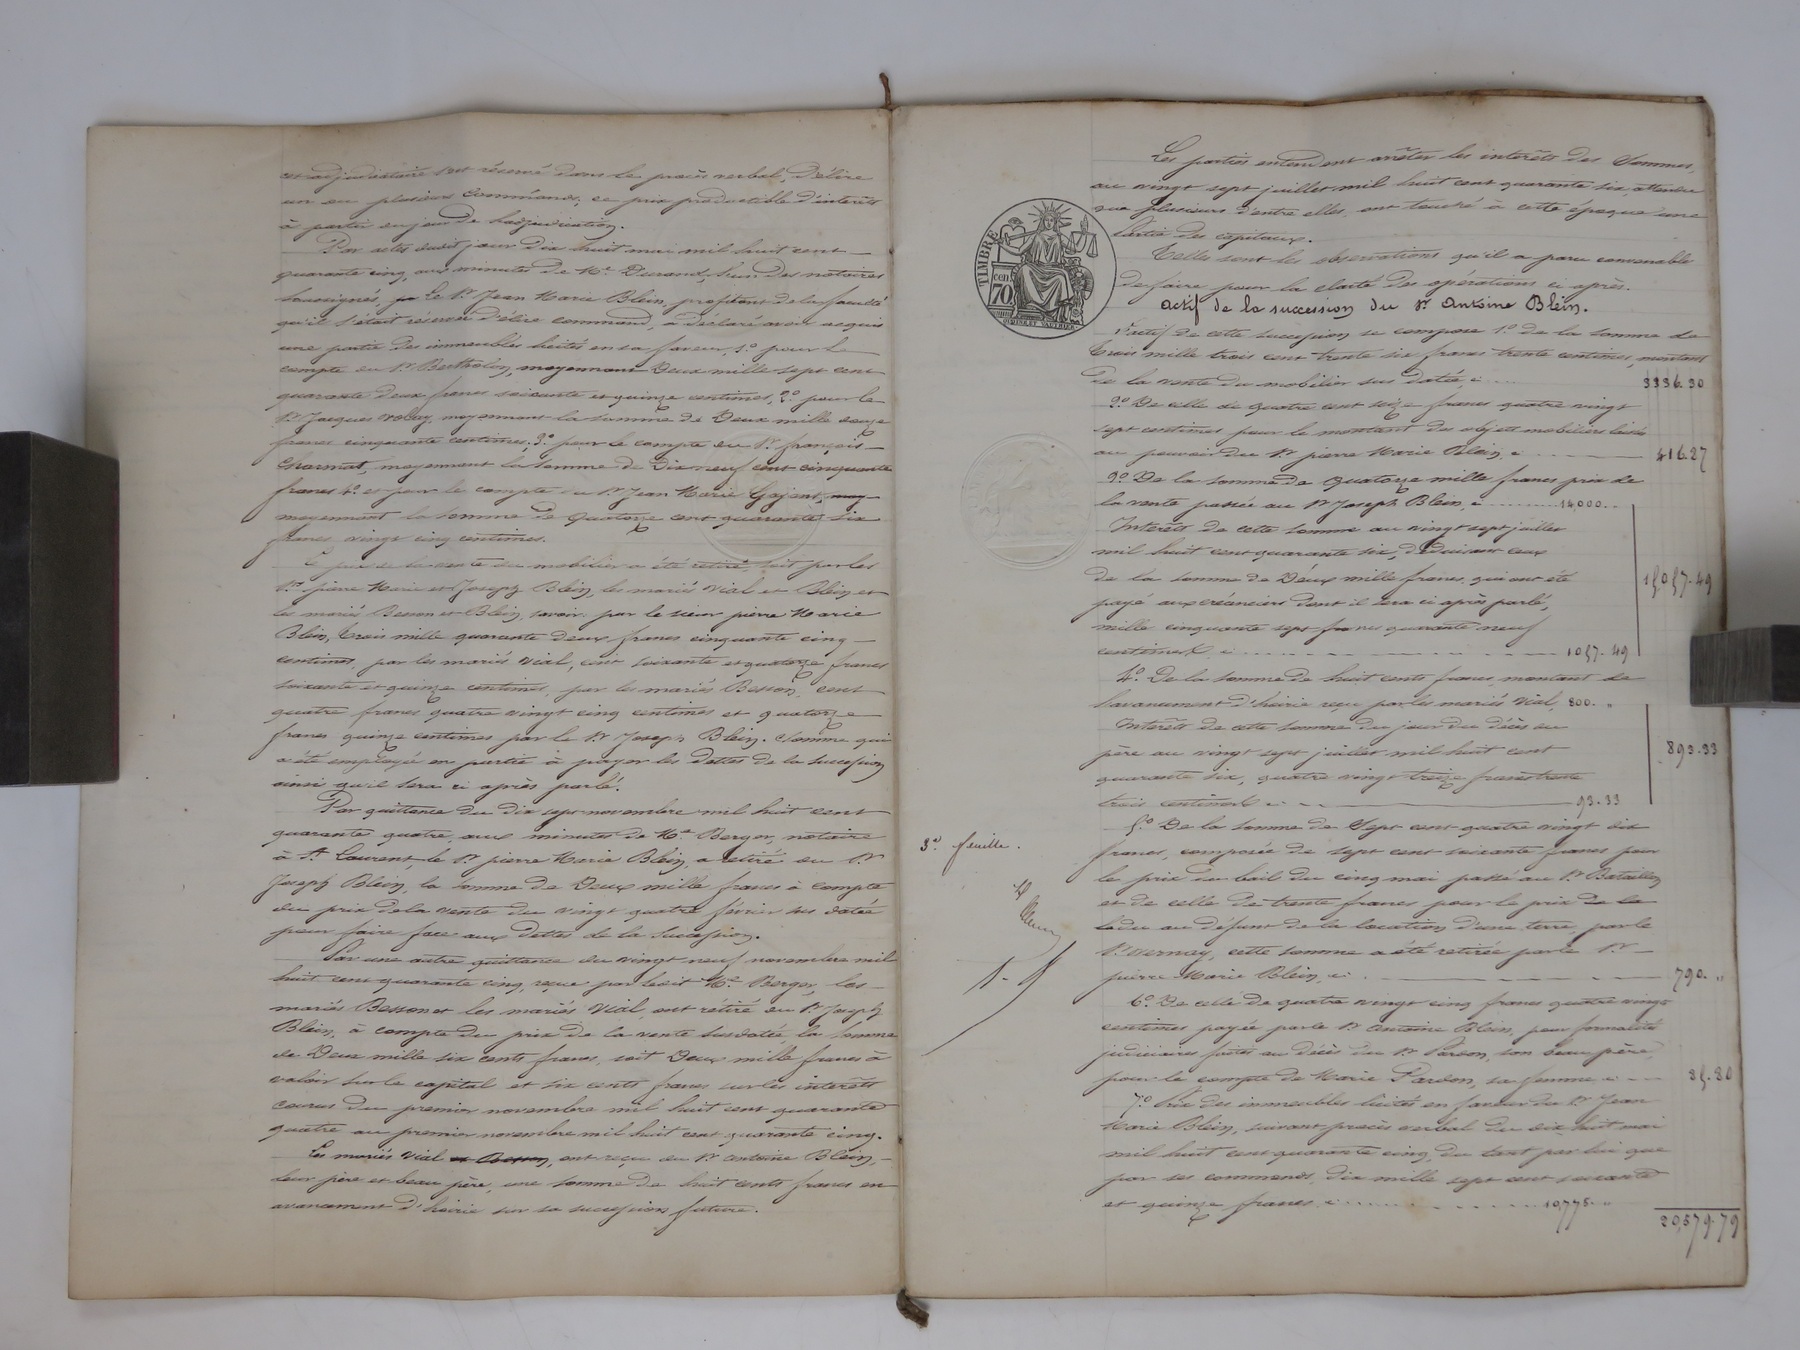 cet adjudicataire s'est réservé dans le procès verbal, D'élire
un ou plusieurs Commands, ce prix productible d'intérêts
à partir du jour de l'adjudication.
Par actes dudit jour dix huit mai mil huit cent
quarante cinq, aux minutes de Me Durand, l'un des notaires
soussignés, Le Sr Jean Marie Blein, profitant de la faculté
qu'il s'était réservée d'élire command, a déclaré avoir acquis
une partie des immeubles licités en sa faveur, 1o pour le
compte du Sr Bertholon, moyennant Deux mille sept cent
quarante deux francs soixante et quinze centimes, 2o pour le
Sr Jacques moyennant la somme de Deux mille douze
francs cinquante centimes; 3o pour le compte du Sr françois
Charmat, moyennant la somme de Dix neuf cent cinquante
francs 4o et pour le compte du Sr Jean Marie Gojant, moy-
moyennant la somme de Quatorze cent quarante six
francs vingt cinq centimes.
Le prix de la vente du mobilier a été retiré, soit par les
Srs pierre Marie et Joseph Blein, les mariés Vial et Blein et
les mariés Besson et Blein, savoir, par le sieur pierre Marie
Blein, trois mille quarante deux francs cinquante cinq
centimes, par les mariés Vial, cent soixante et quatorze francs
soixante et quinze centimes, par les mariés Besson, cent
quatre francs quatre vingt cinq centimes et quatorze
francs quinze centimes par le Sr Joseph Blein. Somme qui
a été employée en partie à payer les dettes de la succession
ainsi qu'il sera ci après parlé.
Par quittance du dix sept novembre mil huit cent
quarante quatre, aux minutes de Me Berger, notaire
à St Laurent, le Sr pierre Marie Blein, a retiré du Sr
Joseph Blein, la somme de Deux mille francs à compte
du prix de la vente du vingt quatre février sus datée
pour faire face aux dettes de la succession.
Par une autre quittance du vingt neuf novembre mil
huit cent quarante cinq, reçue par ledit Me Berger, les
mariés Besson et les mariés Vial, ont retiré du Sr Joseph
Blein, à compte du prix de la vente susdatée, la somme
de Deux mille six cents francs, soit Deux mille francs à
valoir sur le capital et six cents francs sur les intérêts
courus du premier novembre mil huit cent quarante
quatre au premier novembre mil huit cent quarante cinq.
Les mariés Vial et Besson, ont reçu du Sr Antoine Blein,
leur père et beau père, une somme de huit cents francs en
avancement d'hoirie sur sa succession future.
Les parties entendent arrêter les intérêts des Sommes,
au vingt sept juillet mil huit cent quarante six, attendu
que plusieurs d'entre elles, ont touché à cette époque une
partie des capitaux.
Telles sont les observations qu'il a paru convenable
de faire pour la clarté des opérations ci après.
TIMBRE
cen
70
Actif de la succession du Sr Antoine Blein.
L'actif de cette succession se compose 1o de la somme de
Trois mille trois cent trente six francs trente centimes, montant
De la vente du mobilier sus datée, ci 3336.30
2o De celle de quatre cent seize francs quatre vingt
sept centimes pour le montant des objets mobiliers laissés
au pouvoir du Sr pierre Marie Blein, ci 416.87
3o De la somme de Quatorze mille francs prix de
la vente passée au Sr Joseph Blein, ci 14000.
Intérêts de cette somme au vingt sept juillet
mil huit cent quarante six, déduisant ceux
de la somme de Deux mille francs, qui ont été
payé aux créanciers dont il sera ci après parlé,
mille cinquante sept francs quarante neuf
centimes ci 1057.49
15057.49
4o De la somme de huit cents francs, montant de
l'avancement d'hoirie reçu par les mariés Vial, 800. "
Intérêts de cette somme du jour du décès du
père au vingt sept juillet mil huit cent
quarante six, quatre vingt treize francs trente
trois centimes ci 93.33
893.33
5o De la somme de Sept cent quatre vingt dix
francs, composée de sept cent soixante francs pour
le prix du bail du cinq mai passé au Sr Bataillon
et de celle de trente francs pour le prix de la
due au défunt de la location d'une terre, par le
Sr Vernay, cette somme a été retirée par le Sr
pierre Marie Blein, ci 790. "
3e feuille.
6o De celle de quatre vingt cinq francs quatre vingt
centimes payée par le Sr Antoine Blein, pour formalités
judiciaires faites au décès du Sr Pardon, son beau père,
pour le compte de Marie Pardon, sa femme ci 85.80
7o Prix des immeubles licités en faveur du Sr Jean
Marie Blein, suivant procès verbal du dix huit mai
mil huit cent quarante cinq, du tant par lui que
par ses commands, dix mille sept cent soixante
et quinze francs ci 10,775. "
20,579.79